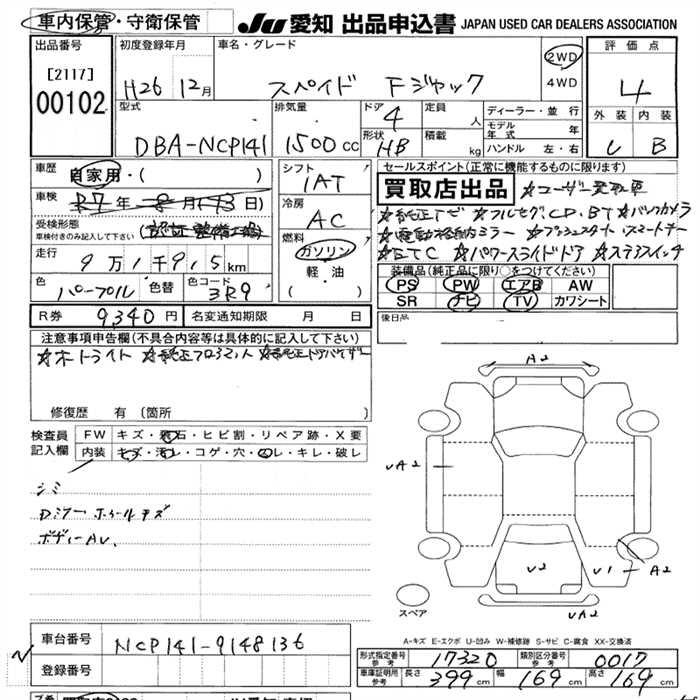 車内保管・守衛保管 JU 愛知 出品申込書 JAPAN USED CAR DEALERS ASSOCIATION
出品番号 初度登録年月 車名・グレード 2WD 評価点
[2117] H26 12月 スペイド Fジャック 4WD 4
00102 型式 排気量 ドア 4 定員 人 ディーラー・並行 外装 内装
DBA-NCP141 1500cc 形状 HB 積載 kg モデル年式 年 ハンドル 左・右 U B
車歴 自家用・( ) シフト 1AT セールスポイント(正常に機能するものに限ります)
車検 R7年 8月(13日) 冷房 買取店出品 ☆ユーザー買取車
受検形態 車検付きのみ記入して下さい (認証整備工場) AC ☆純正ナビ ☆フルセグ CD、BT ☆バックカメラ
走行 9万1千915km 燃料 ガソリン ☆電動格納ミラー ☆プッシュスタート・スマートキー
色 パープル 色替 色コード 3R9 軽・油 ( ) ☆ETC ☆パワースライドドア ☆ステアスイッチ
装備品(純正品に限り○をつけてください)
PS PW エアB AW
SR ナビ TV カワシート
R券 9340円 名変通知期限 月 日 後日品
注意事項申告欄(不具合内容等は具体的に記入して下さい)
☆ホトライト ☆純正フロアマット ☆純正ドアバイザー
修復歴 有 (箇所 )
検査員記入欄 FW キズ・飛石・ヒビ割・リペア跡・X要
内装 キズ・汚レ・コゲ・穴・スレ・キレ・破レ
シミ
Dミラー ホイールキズ
ボディーAU、
A2
UA2
U2 U1 A2
UA2
スペア
A-キズ E-エクボ U-凹み W-補修跡 S-サビ C-腐食 XX-交換済
車台番号 NCP141-9148136
登録番号
形式指定番号 参考 17320 類別区分番号 参考 0017
車庫証明用 参考 長さ 399cm 幅 169cm 高さ 169cm